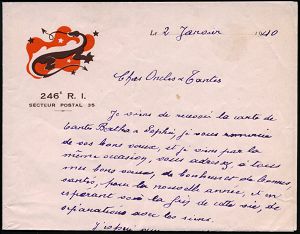 Le 2 Janvier 1940
246e R. I.
SECTEUR POSTAL 35
Chers Oncles & Tantes
Je viens de recevoir la carte de
tante Bertha & Sophie, je vous remercie
de vos bons vœux, et je viens par la
même occasion, vous adresser à tous
mes bons vœux, de bonheur et de bonne
santé, pour la nouvelle année, et en
espérant voir la fin de cette vie, de
séparations avec les siens.
J'espère